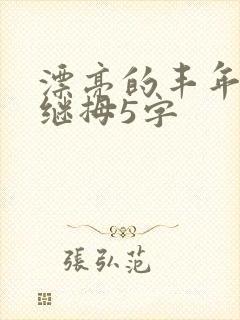 漂亮的丰年
继拇5字
張弘范